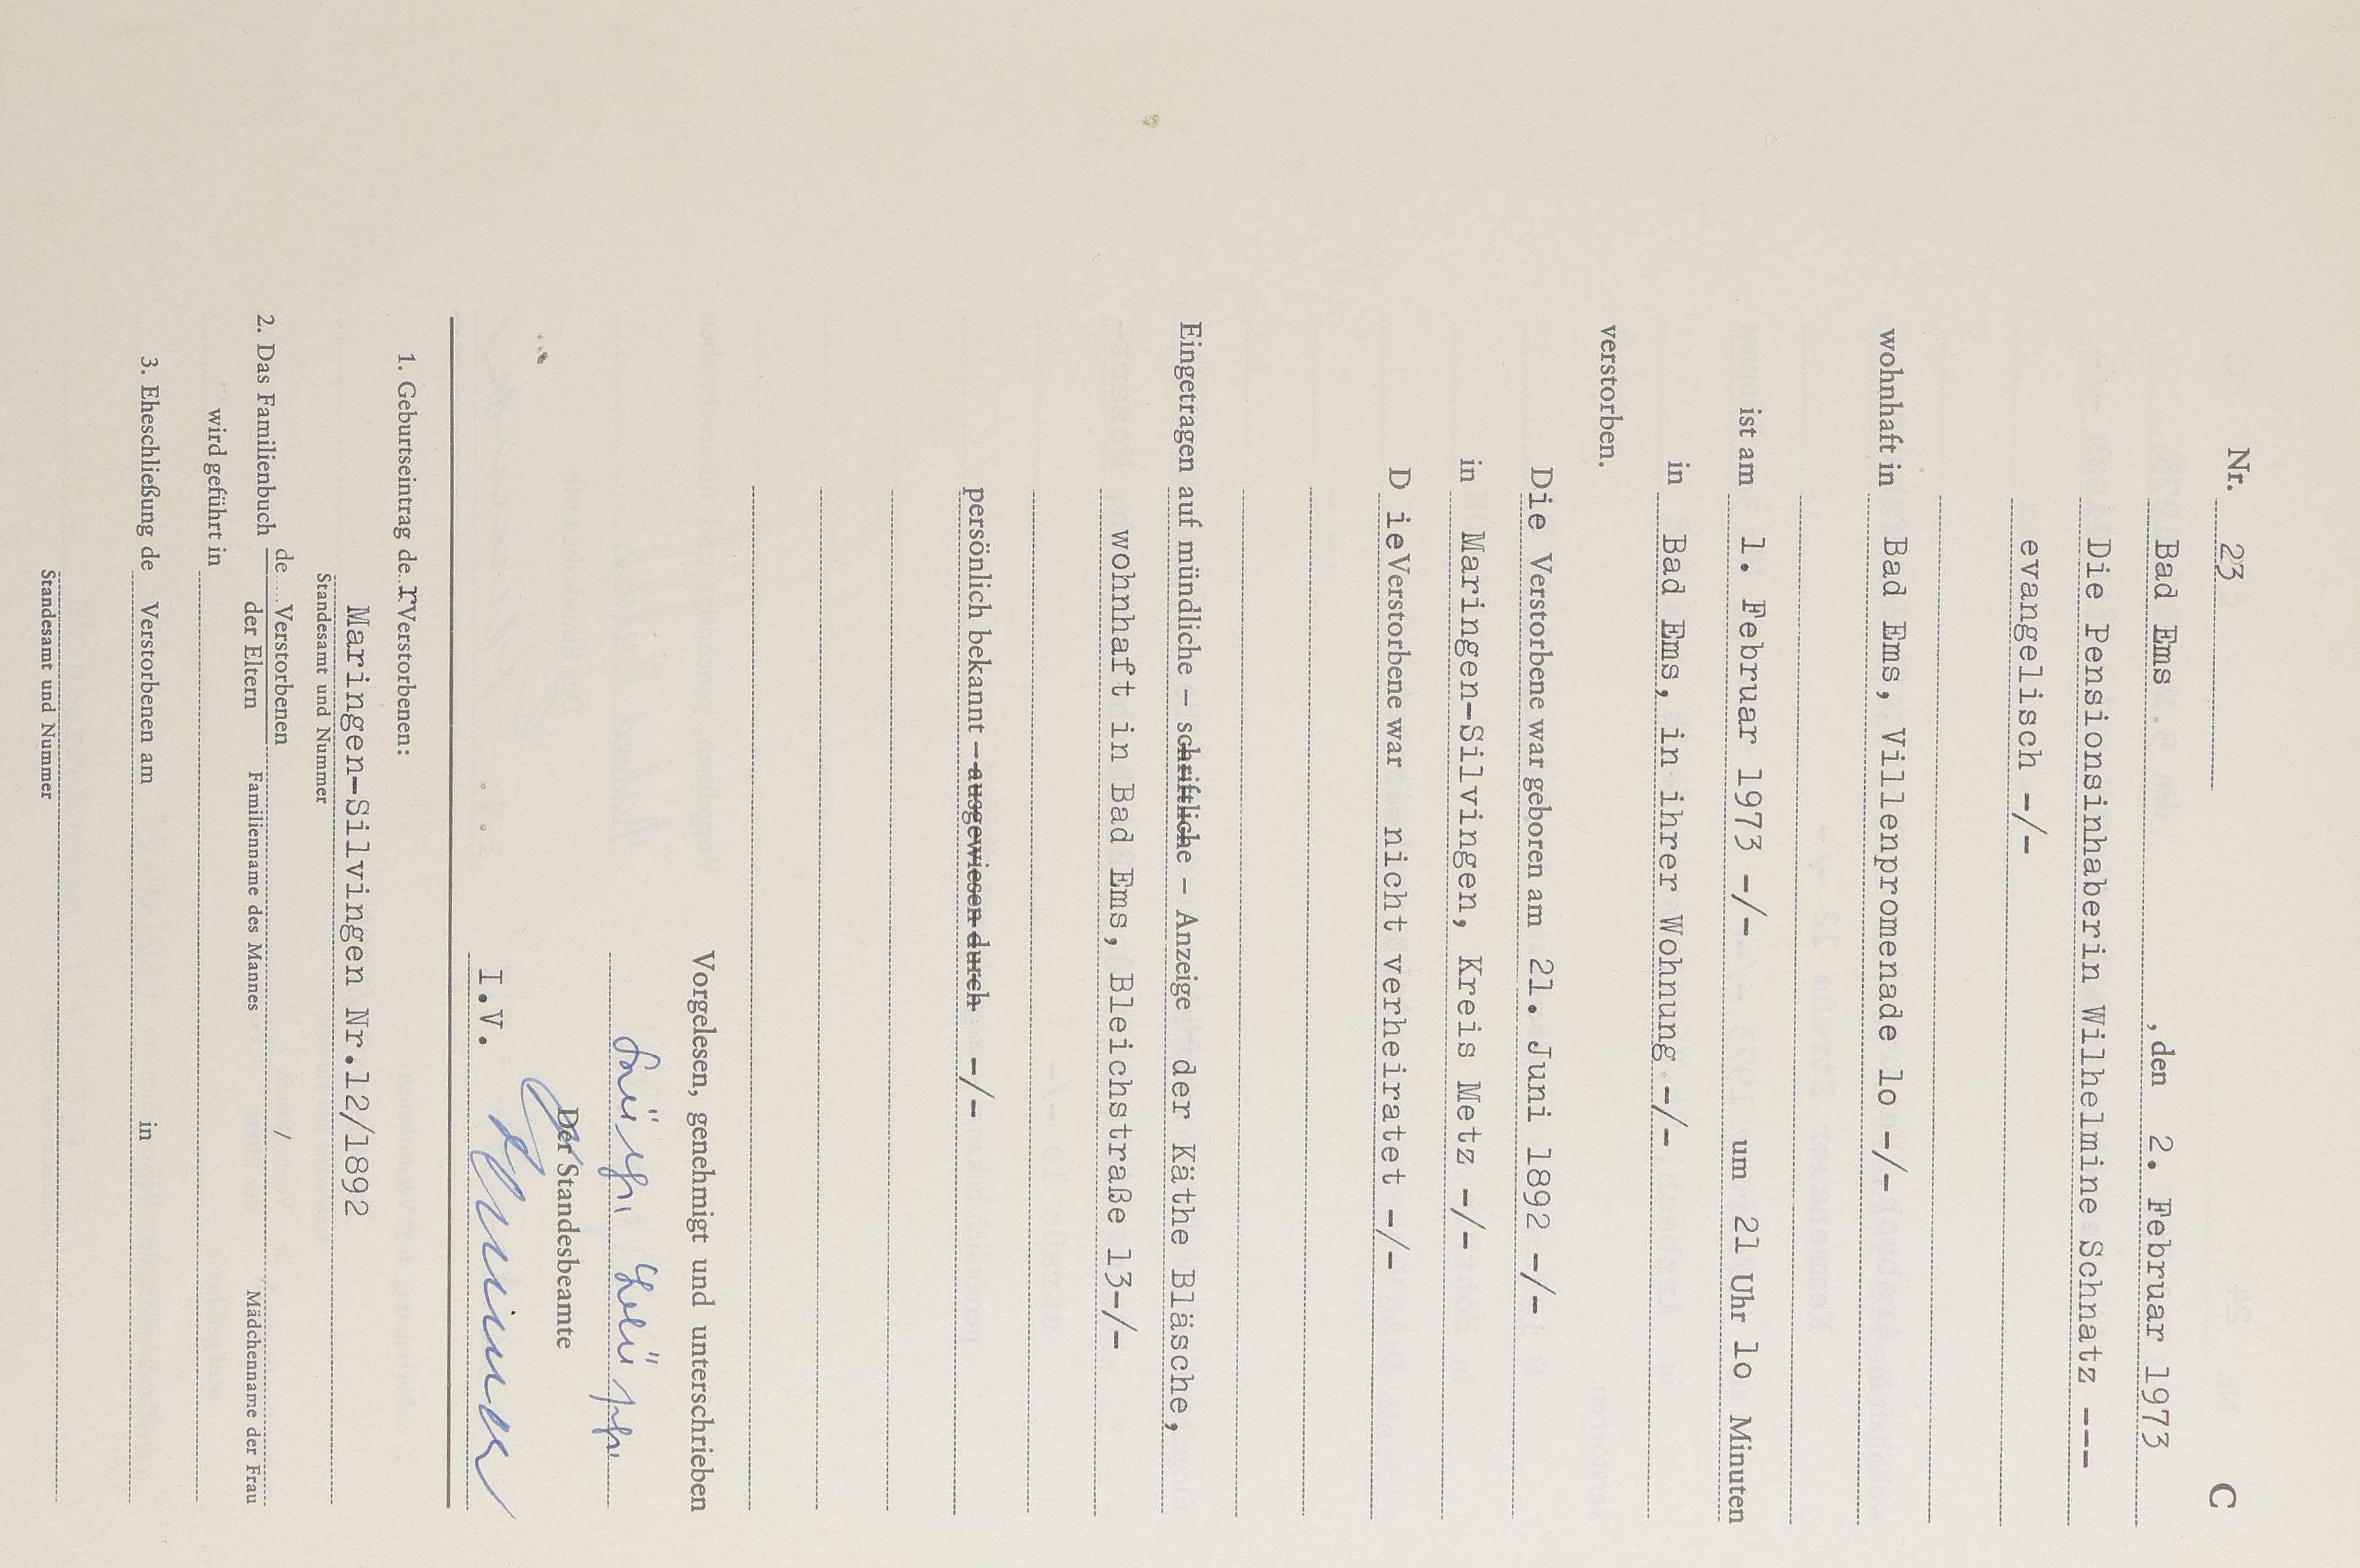 Nr. 23 C
Bad Ems , den 2. Februar 1973
Die Pensionsinhaberin Wilhelmine Schnatz ---
evangelisch -/-
wohnhaft in Bad Ems, Villenpromenade lo -/-
ist am 1. Februar 1973 -/- um 21 Uhr lo Minuten
in Bad Ems, in ihrer Wohnung -/-
verstorben.
Die Verstorbene war geboren am 21. Juni 1892 -/-
in Maringen-Silvingen, Kreis Metz -/-
D ie Verstorbene war nicht verheiratet -/-
Eingetragen auf mündliche - schriftliche - Anzeige der Käthe Bläsche,
wohnhaft in Bad Ems, Bleichstraße 13-/-
persönlich bekannt - ausgewiesen durch -/-
Vorgelesen, genehmigt und unterschrieben
Der Standesbeamte
I.V.
1. Geburtseintrag de r Verstorbenen:
Maringen-Silvingen Nr.12/1892
Standesamt und Nummer
2. Das Familienbuch de Verstorbenen /
der Eltern Familienname des Mannes Mädchenname der Frau
wird geführt in
3. Eheschließung de Verstorbenen am in
Standesamt und Nummer